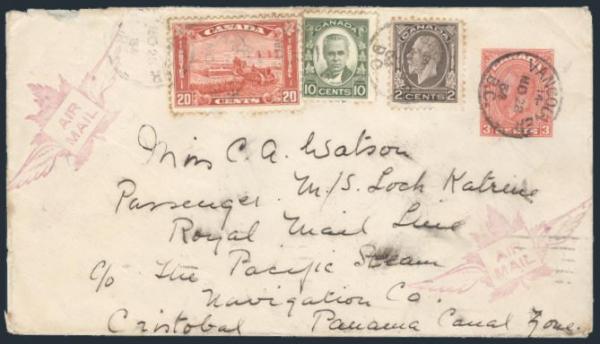 CANADA
20 CENTS 20
CANADA
10 CENTS 10
2 CENTS 2
VANCOUVER
B.C.
3 CENTS 3
AIR
MAIL
Miss C. A. Watson
Passenger M/S. Loch Katrine
Royal Mail Line
c/o The Pacific Steam
Navigation Co.
Cristobal Panama Canal Zone.
AIR
MAIL